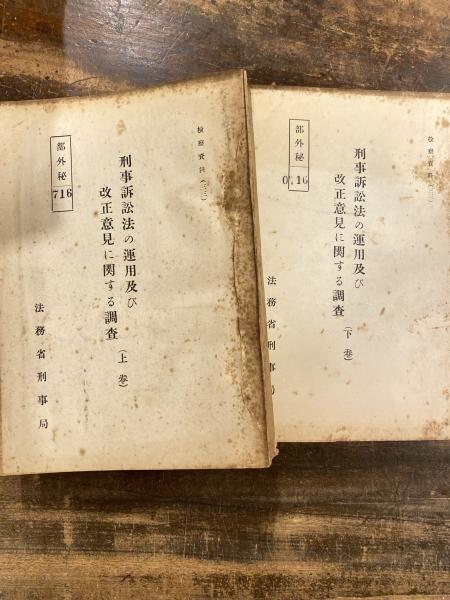 検察資料
刑事訴訟法の運用及び
改正意見に関する調査（上巻）
部外秘
716
法務省刑事局
検察資料
刑事訴訟法の運用及び
改正意見に関する調査（下巻）
部外秘
0716
法務省刑事局